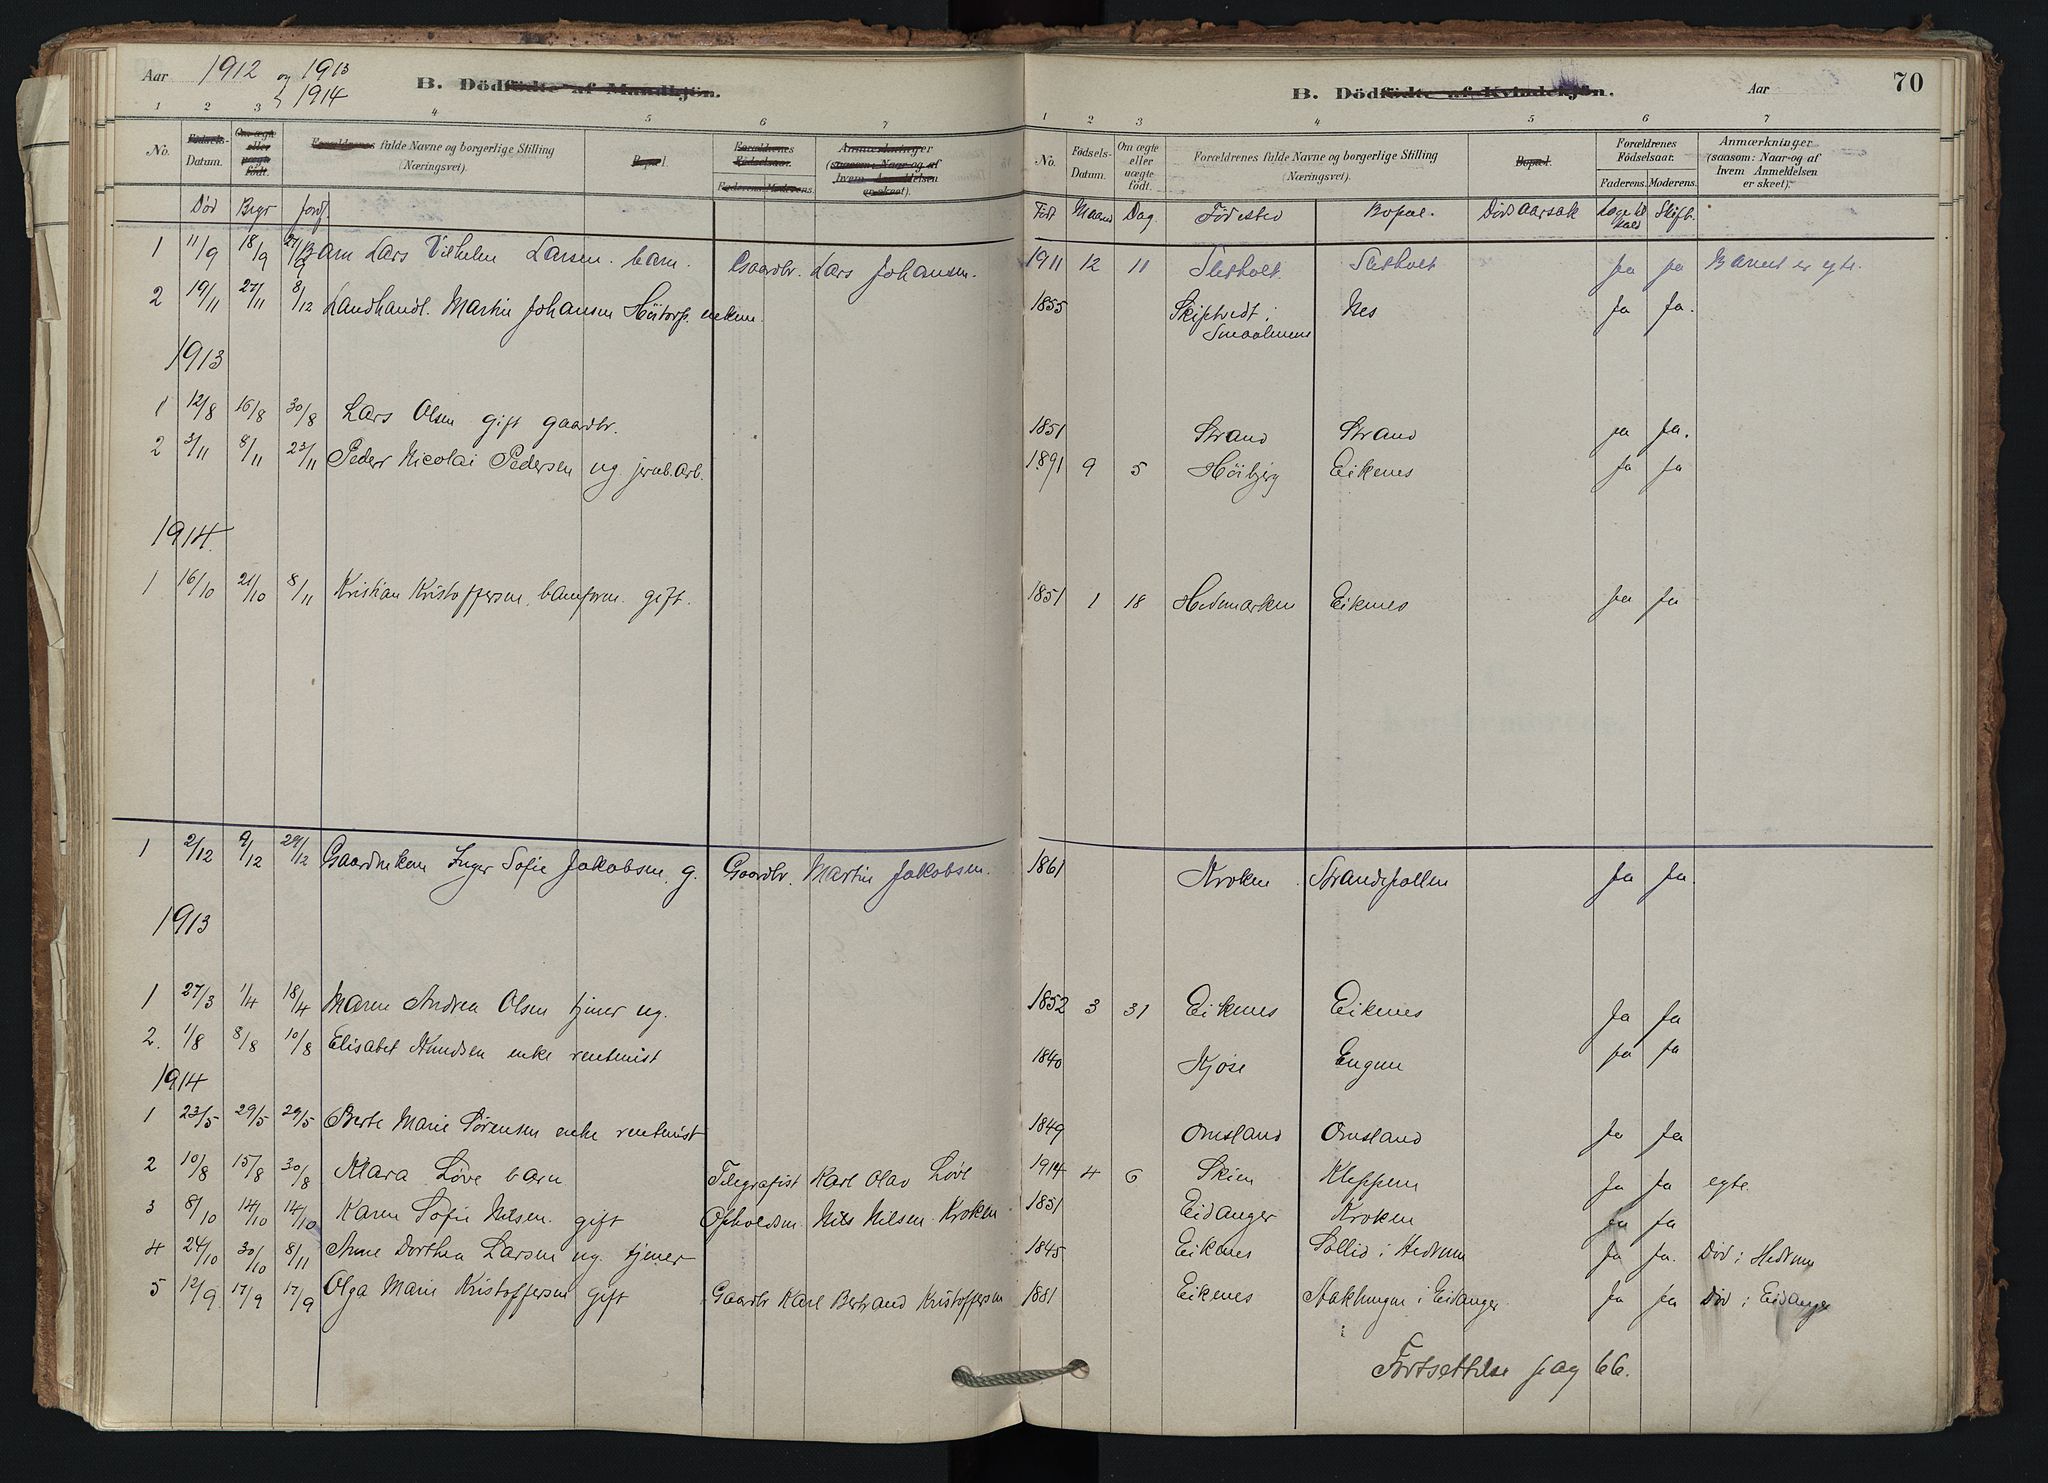 Aar 1912 og 1913
1914
B. Dödfödte af Mandkjön.
B. Dödfödte af Kvindekjön. Aar 70
1 2 3 4 5 6 7
1 2 3 4 5 6 7
No. Födsels-Datum. Om ægte eller uægte født. Forældrenes fulde Navne og borgerlige Stilling (Næringsvei). Bopæl. Forældrenes Födselsaar. Faderens. Moderens. Anmærkninger (saasom: Naar og af hvem Anmeldelsen er skeet).
No. Födsels-Datum. Om ægte eller uægte födt. Forældrenes fulde Navne og borgerlige Stilling (Næringsvei). Bopæl. Forældrenes Födselsaar. Faderens. Moderens. Anmærkninger (saasom: Naar og af hvem Anmeldelsen er skeet).
Död Begr Jordf
Født Maaned Dag. Fødested Bopæl. Dödsaarsak Skift.
1 11/9 18/9 27/9 Barn Lars Vilhelm Larsen. barn. Gaardbr. Lars Johansen. 1911 12 11 Sletholt Sletholt ja ja Barnet er egte.
2 19/11 27/11 8/12 Landhandl. Martin Johansen Höitorp. enkem. 1855 Skiptvedt i Smaalenene Nes ja ja.
1913
1 12/8 16/8 30/8 Lars Olsen gift gaardbr. 1851 Strand Strand ja ja.
2 3/11 8/11 23/11 Peder Nicolai Pedersen ug. jernb.arb. 1891 9 5 Höibjerg Eikenes ja ja
1914.
1 16/10 21/10 8/11 Kristian Kristoffersen, banform. gift. 1851 1 18 Hedemarken Eikenes ja ja
1 2/12 9/12 29/12 Inger Sofie Jakobsen, g. Gaardbr. Martin Jakobsen. 1861 Kroken Strandepollen ja ja.
1913
1 27/3 1/4 18/4 Maren Andrea Olsen tjener ug. 1852 3 31 Eikenes Eikenes ja ja
2. 1/8 8/8 10/8 Elisabet Knudsen enke rentenist 1840 Kjose Engene ja ja
1914
1 23/5 29/5 29/5 Berte Marie Sørensen enke rentenist 1849 Omsland Omsland ja ja
2 10/8 15/8 30/8 Klara Löve barn Telegrafist Karl Olav Löve 1914 4 6 Skien Kleppen ja ja egte.
3 8/10 14/10 14/10 Karen Sofie Nilsen. gift Opholdsm. Nils Nilsen. Kroken 1851 Eidanger Kroken ja ja
4 24/10 30/10 8/11 Anne Dorthea Larsen ug. tjener 1845 Eikenes Sollid i Hedrum ja ja. Död i Hedrum
5 12/9 17/9 17/9 Olga Marie Kristoffersen gift Gaardbr Karl Bertrand Kristoffersen 1881 Eikenes i Eidanger ja ja Död i Eidanger
Fortsettelse pag 66.